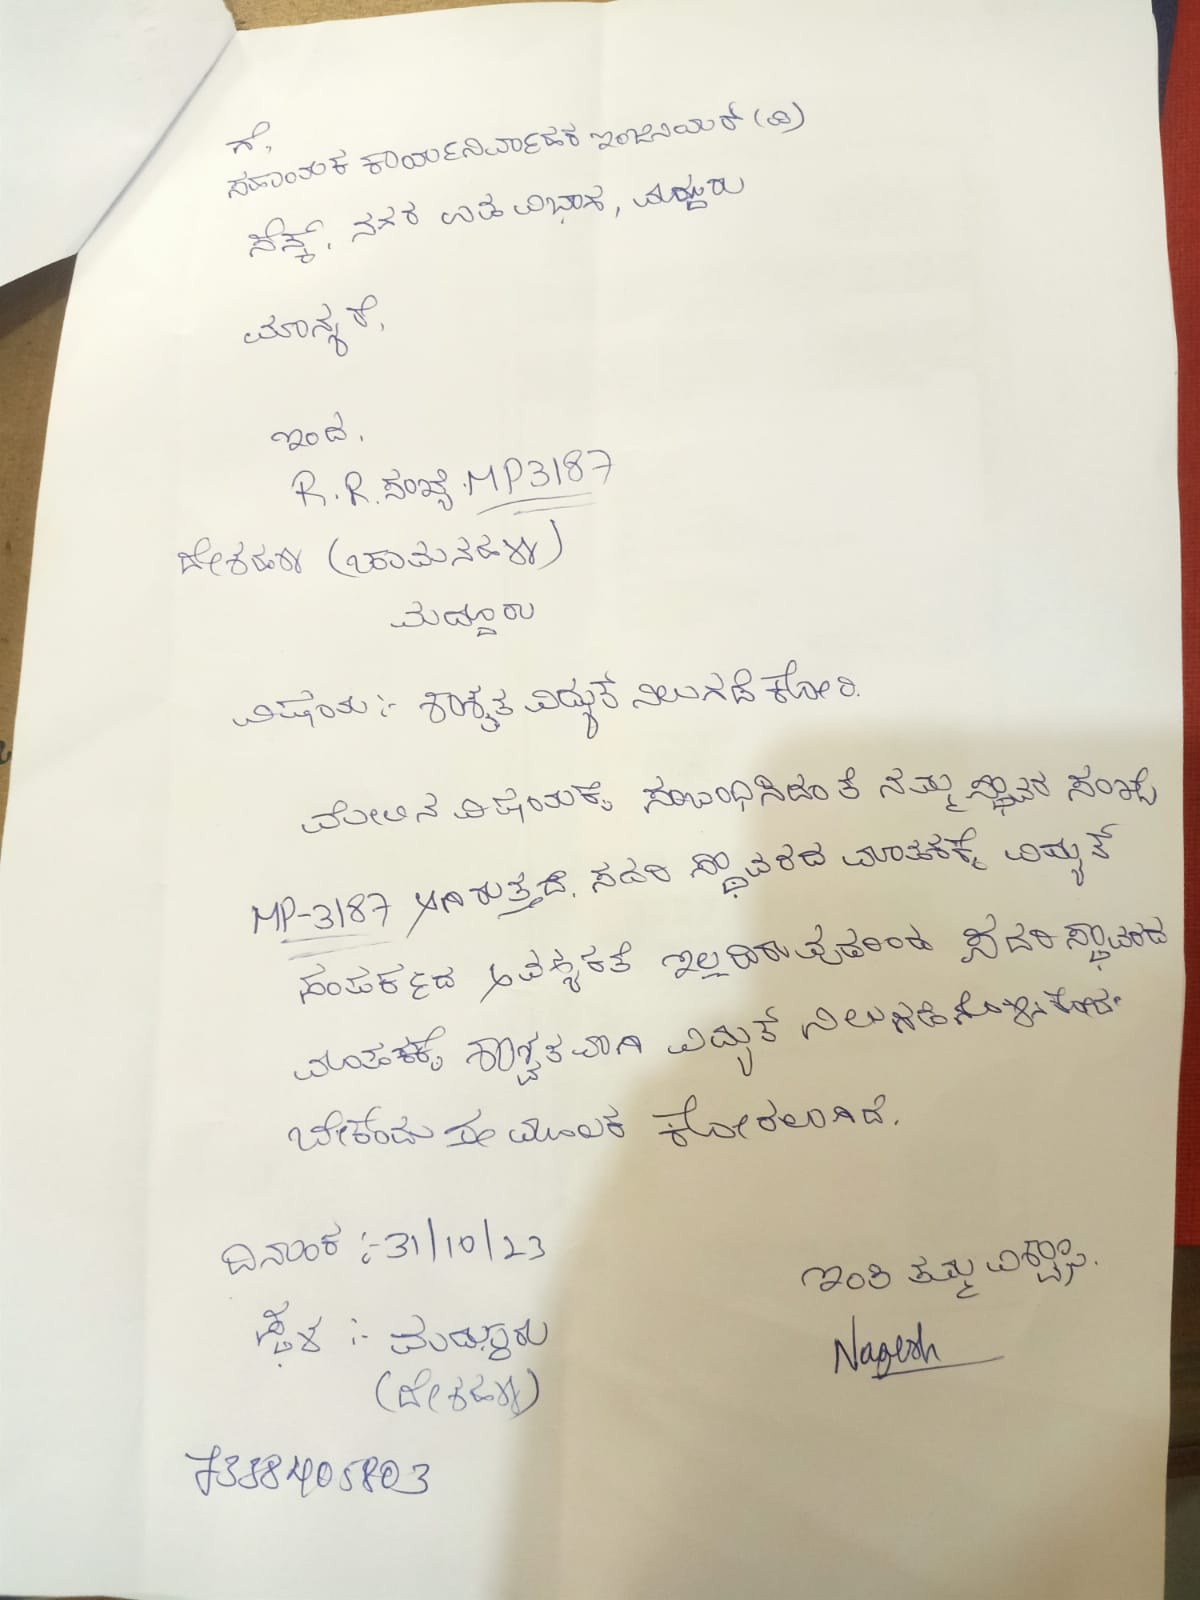 ಗೆ,
ಸಹಾಯಕ ಕಾರ್ಯನಿರ್ವಾಹಕ ಇಂಜಿನಿಯರ್ (ವಿ)
ಸೆಸ್ಕ್, ನಗರ ಉಪ ವಿಭಾಗ, ಮದ್ದೂರು
ಮಾನ್ಯರೆ,
ಇಂದ,
R.R. ಸಂಖ್ಯೆ. MP3187
ದೇಶಹಳ್ಳಿ (ಚಾಮನಹಳ್ಳಿ)
ಮದ್ದೂರು
ವಿಷಯ :- ಶಾಶ್ವತ ವಿದ್ಯುತ್ ನಿಲುಗಡೆ ಕೋರಿ.
ಮೇಲಿನ ವಿಷಯಕ್ಕೆ ಸಂಬಂಧಿಸಿದಂತೆ ನಮ್ಮ ಸ್ಥಾವರ ಸಂಖ್ಯೆ
MP-3187 ಆಗಿರುತ್ತದೆ. ಸದರಿ ಸ್ಥಾವರದ ಮಾಪಕಕ್ಕೆ ವಿದ್ಯುತ್
ಸಂಪರ್ಕದ ಅವಶ್ಯಕತೆ ಇಲ್ಲದಿರುವುದರಿಂದ ಸದರಿ ಸ್ಥಾವರದ
ಮಾಪಕಕ್ಕೆ ಶಾಶ್ವತವಾಗಿ ವಿದ್ಯುತ್
ಬೇಕೆಂದು ಈ ಮೂಲಕ ಕೋರಲಾಗಿದೆ.
ದಿನಾಂಕ :- 31/10/23
ಇಂತಿ ತಮ್ಮ ವಿಶ್ವಾಸಿ.
ಸ್ಥಳ :- ಮದ್ದೂರು
Nagesh
(ದೇಶಹಳ್ಳಿ)
7338405803